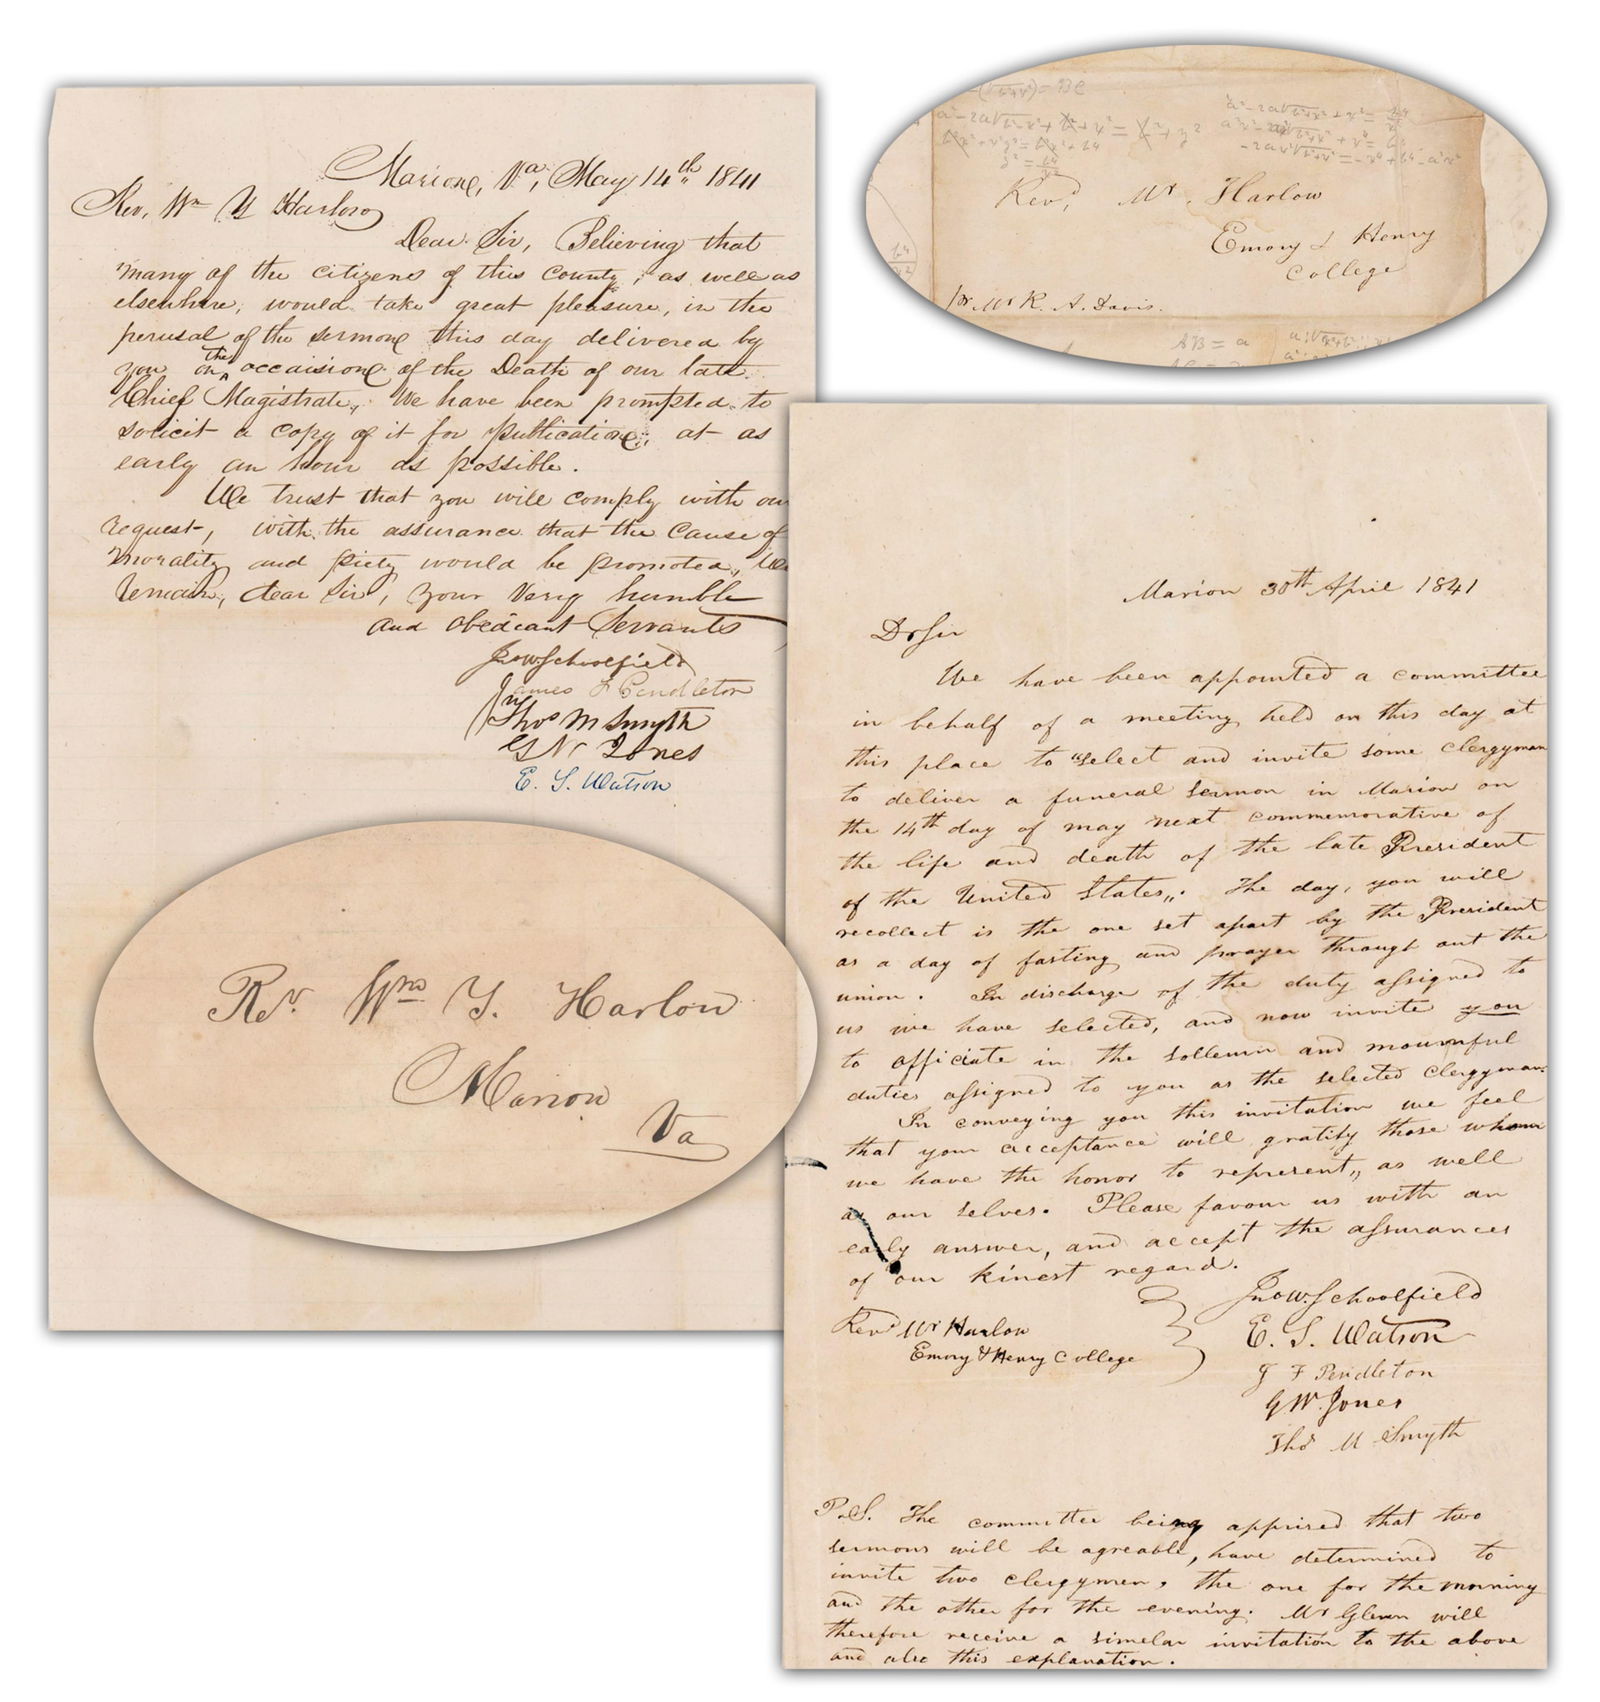 Marion, Va, May 14th 1841
Rev, Wm Y Harlow
Dear Sir, Believing that
many of the citizens of this County, as well as
elsewhere, would take great pleasure, in the
perusal of the sermon this day delivered by
you on the occaision of the Death of our late
Chief Magistrate, We have been prompted to
solicit a copy of it for publication, at as
early an hour as possible.
We trust that you will comply with our
request, with the assurance that the Cause of
morality and piety would be promoted, We
remain, dear Sir, your very humble
and obedeant Servants
Jno W Schoolfield
James F Pendleton
Thos M Smyth
G W Jones
E. S. Watson
Rev. Wm Y. Harlow
Marion
Va
Rev, Mr. Harlow
Emory & Henry
College
pr. Mr R. A. Davis.
AB = a
Marion 30th April 1841
Dr Sir
We have been appointed a committee
in behalf of a meeting held on this day at
this place to "select and invite some clergyman
to deliver a funeral sermon in Marion on
the 14th day of may next commemorative of
the life and death of the late President
of the United States". The day, you will
recollect is the one set apart by the President
as a day of fasting and prayer through out the
union. In discharge of the duty assigned to
us we have selected, and now invite you
to officiate in the sollemn and mournful
duties assigned to you as the selected Clergyman.
In conveying you this invitation we feel
that your acceptance will gratify those whom
we have the honor to represent, as well
as our selves. Please favour us with an
early answer, and accept the assurances
of our kinest regard.
Jno W. Schoolfield
Revd Mr Harlow
E. S. Watson
Emory & Henry College
J F Pendleton
G W. Jones
Thos M Smyth
P.S. The committee being apprised that two
sermons will be agreable, have determined to
invite two clergymen, the one for the morning
and the other for the evening. Mr Glenn will
therefore receive a similar invitation to the above
and also this explanation.